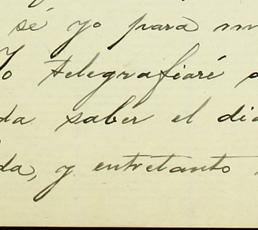 sé yo para
Yo telegrafiaré
da saber el día
da, y entretanto